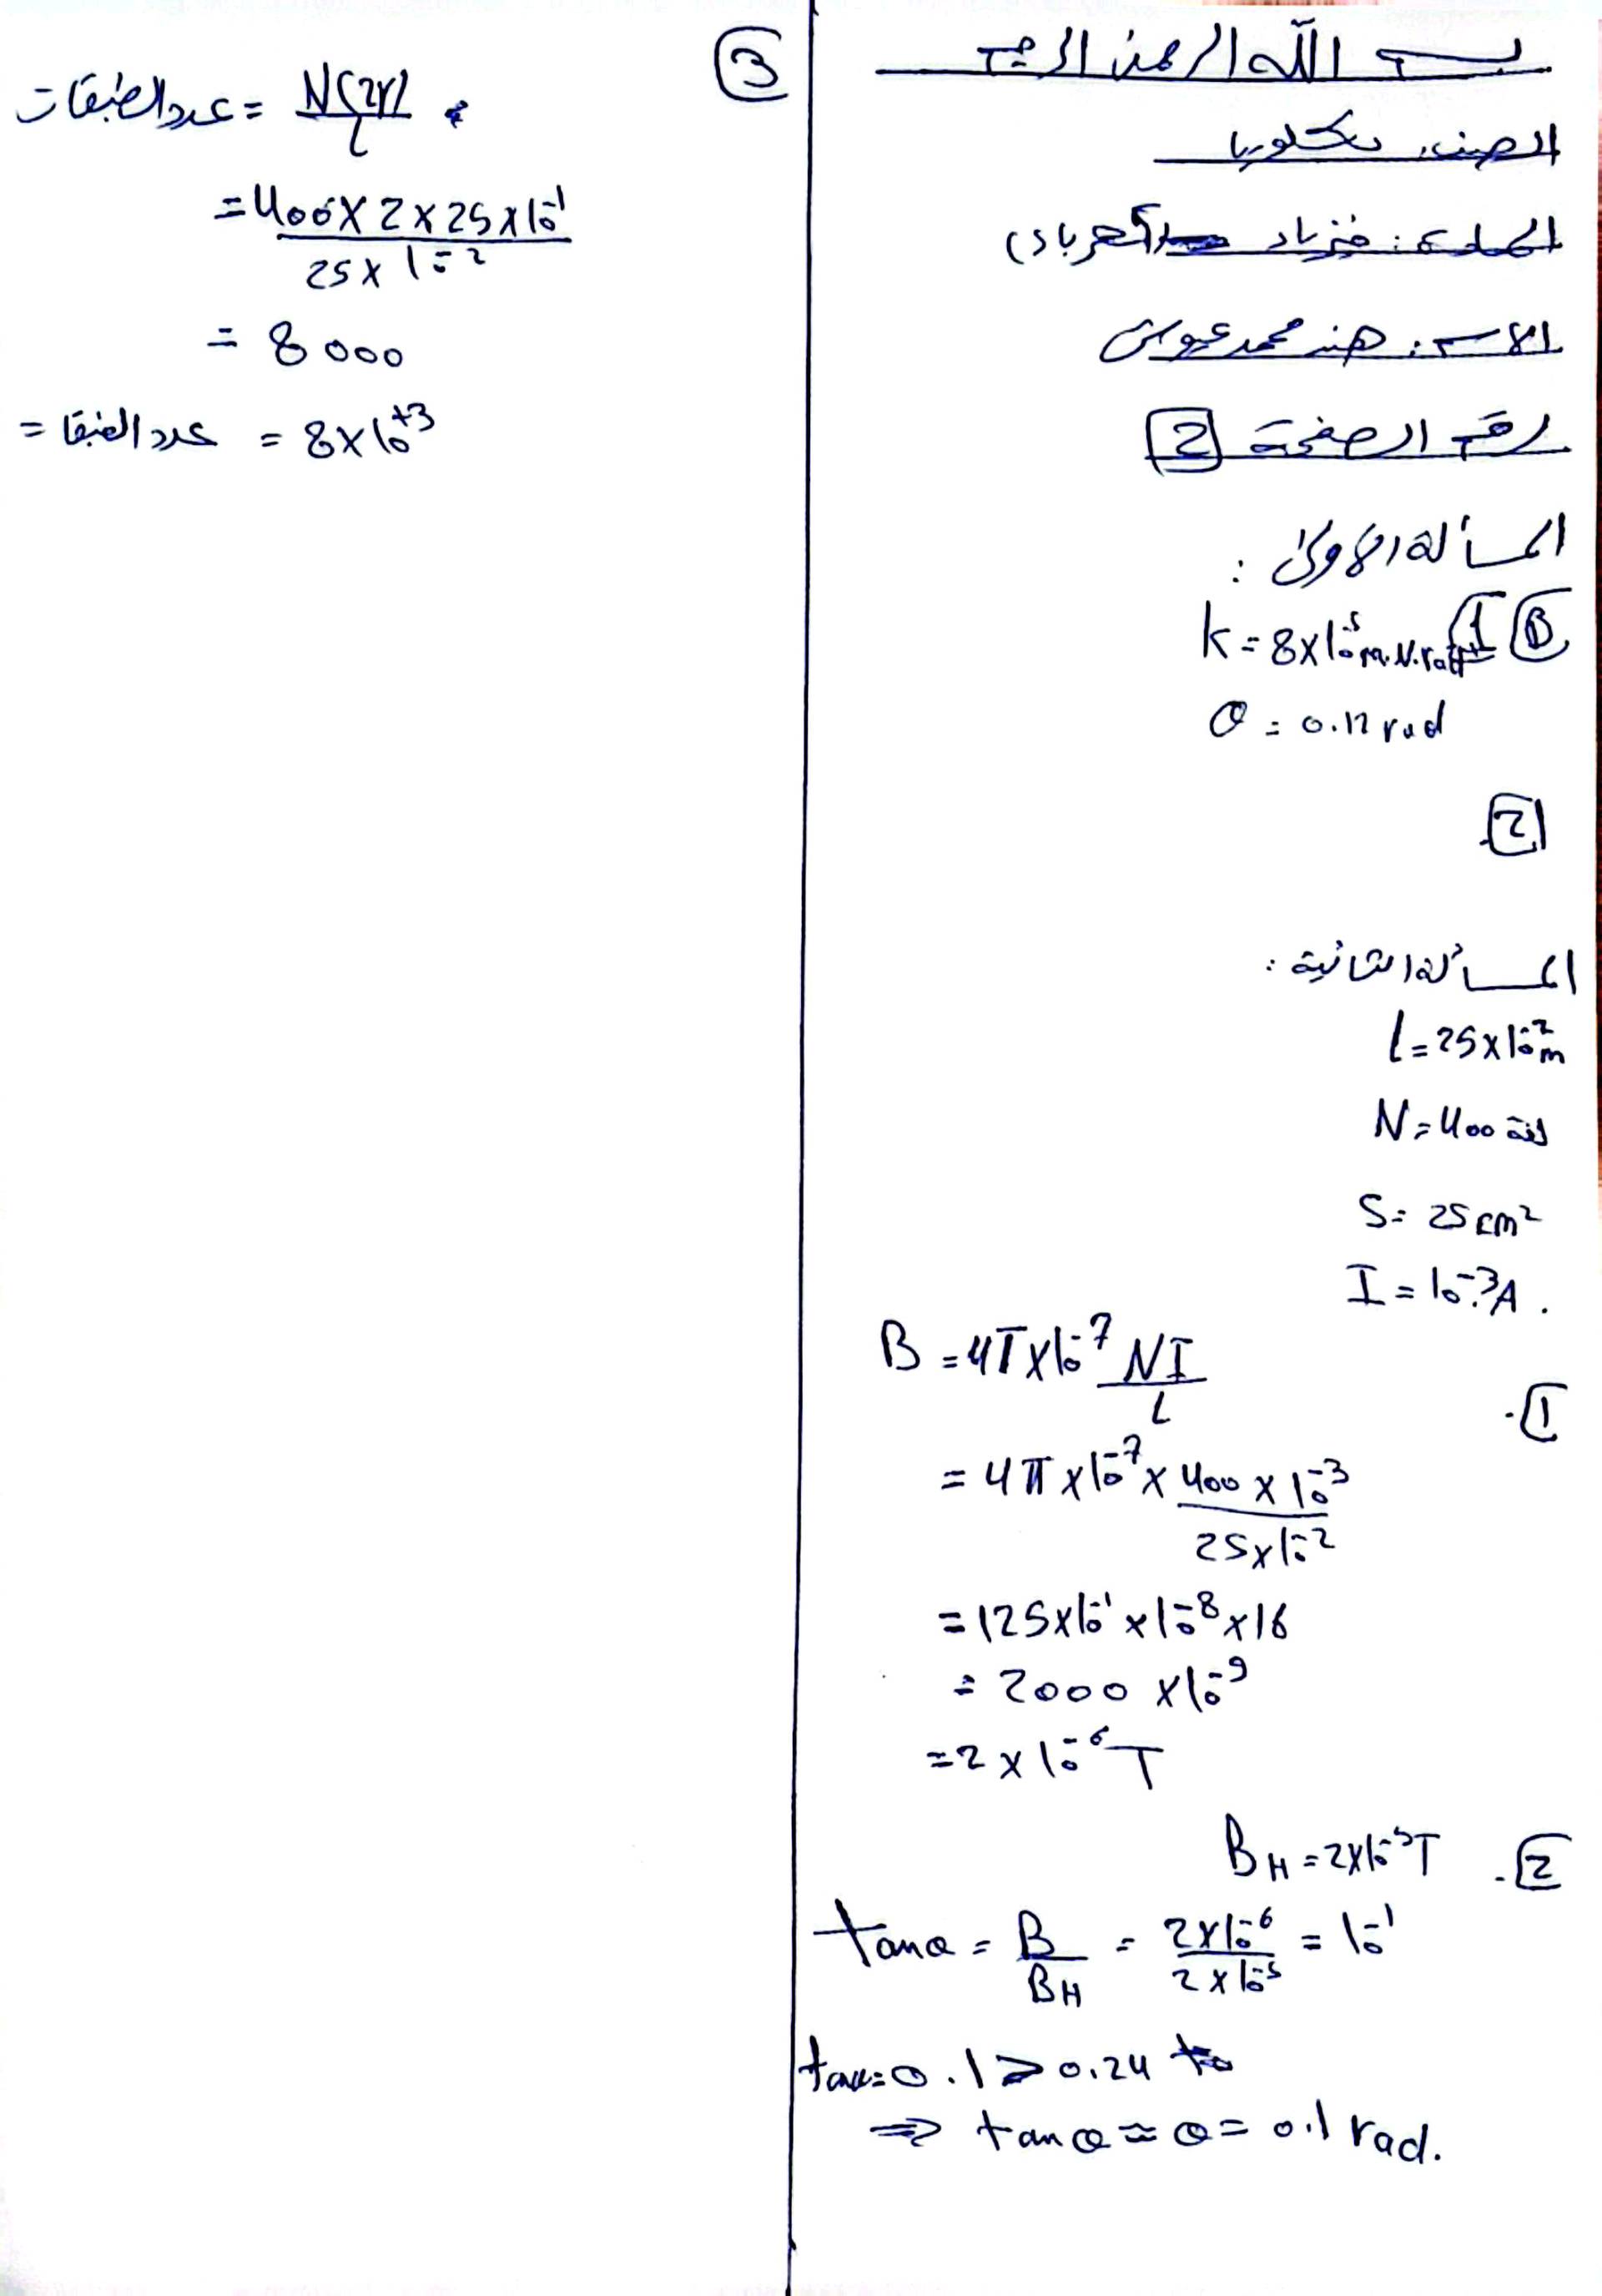 بسم الله الرحمن الرحيم
الصف: بكلوريا
المادة: فيزياء (كهرباء)
الاسم: هند محمد
رقم الصفحة 2
المسألة الأولى:
B 1 k = 8×10⁻⁵ m.N.rad⁻¹
θ = 0.12 rad
2
المسألة الثانية:
l = 25×10⁻² m
N = 400 لفة
S = 25 cm²
I = 10⁻³ A.
1. B = 4π×10⁻⁷ NI/L
= 4π×10⁻⁷ × 400×10⁻³ / 25×10⁻²
= 125×10⁻¹×10⁻⁸×16
= 2000×10⁻⁹
= 2×10⁻⁶ T
2. B_H = 2×10⁻⁵ T
tanθ = B/B_H = 2×10⁻⁶ / 2×10⁻⁵ = 10⁻¹
tan = 0.1 > 0.24
⇒ tanθ ≈ θ = 0.1 rad.
3
عدد الطبقات = N(2r)/l
= 400×2×25×10⁻¹ / 25×10⁻²
= 8000
= عدد الطبقا = 8×10⁺³